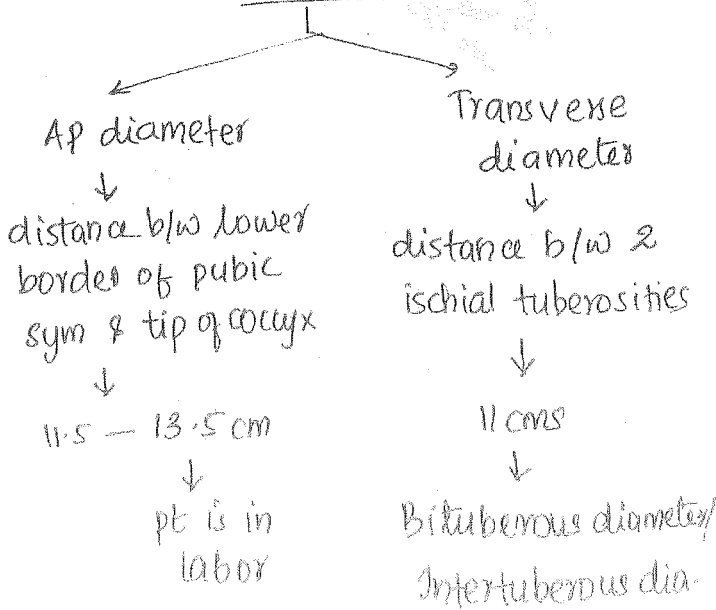 AP diameter
↓
distance b/w lower
border of pubic
sym & tip of coccyx
↓
11.5 — 13.5 cm
↓
pt is in
labor
Transverse
diameter
↓
distance b/w 2
ischial tuberosities
↓
11 cms
↓
Bituberous diameter/
Intertuberous dia.